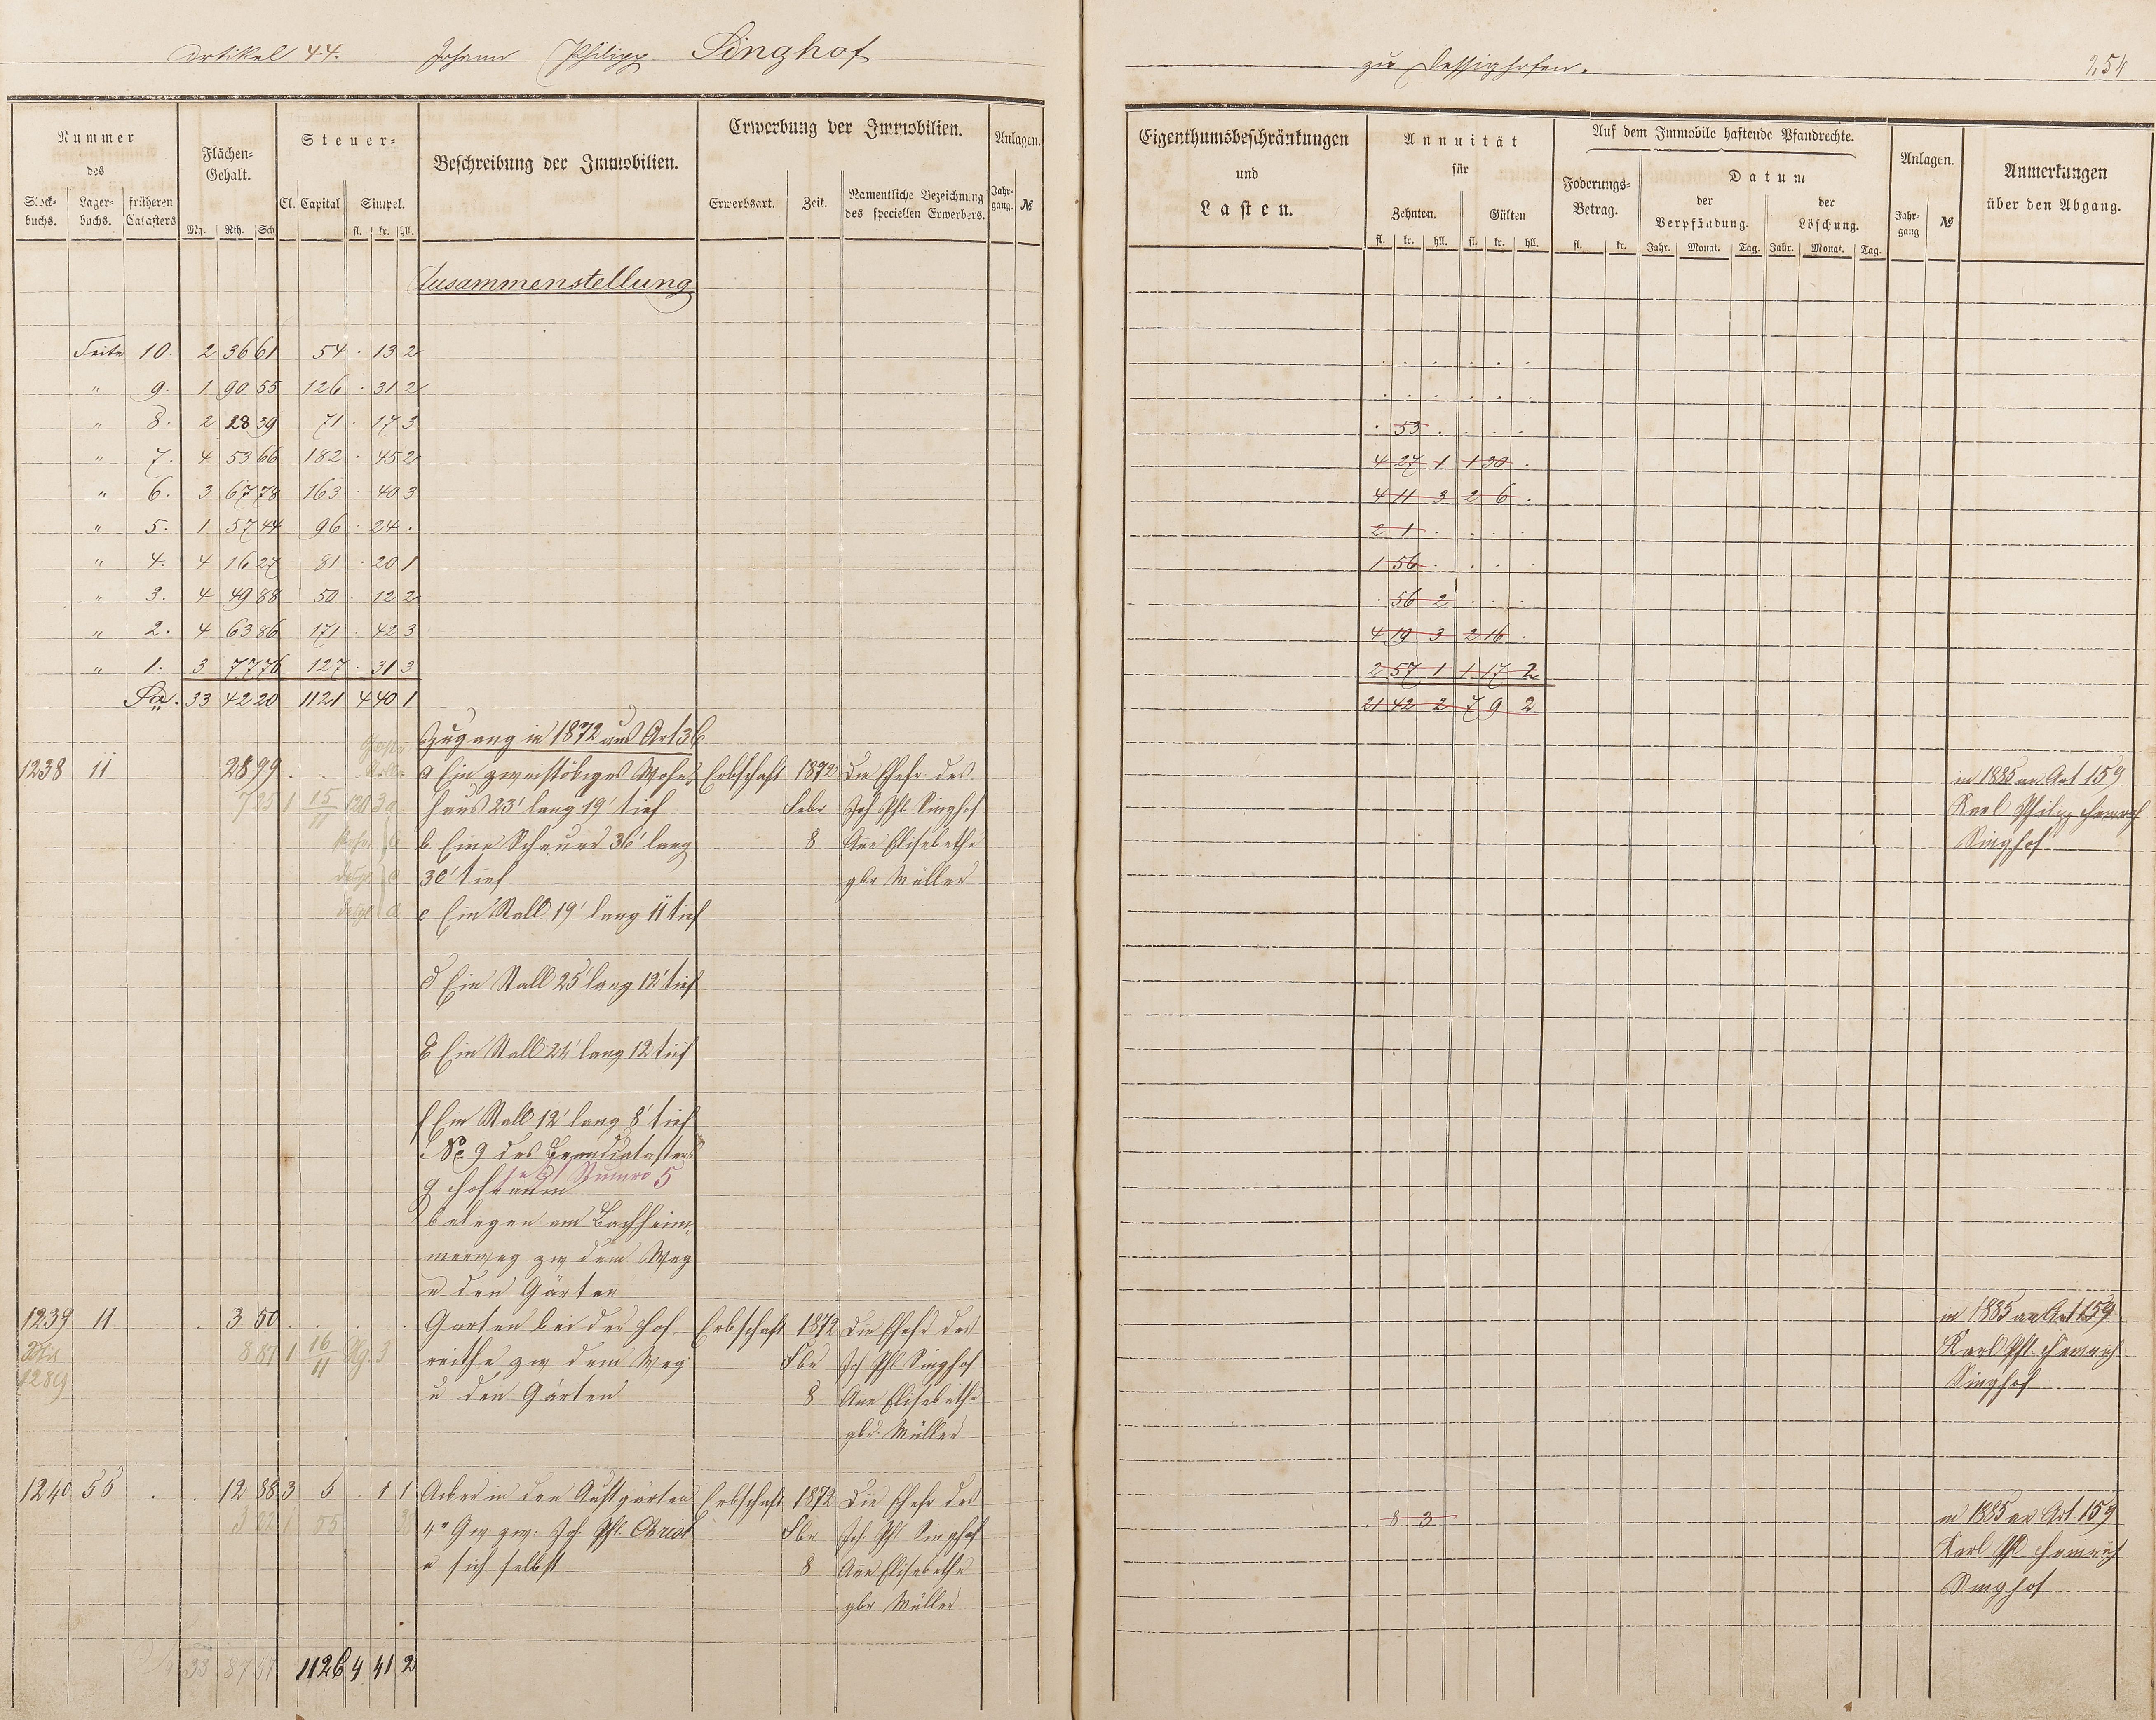 Artikel 44. Johann Philipp Singhof
zu Dessighofen. 254
Nummer des
Stockbuchs. Lagerbuchs. früheren Catasters
Flächen-Gehalt.
Mg. Rth. Sch
Steuer-
Cl. Capital Simpel.
fl. kr. hll.
Beschreibung der Immobilien.
Erwerbung der Immobilien.
Erwerbsart. Zeit. Namentliche Bezeichnung des speciellen Erwerbers.
Anlagen.
Jahrgang. №
Eigenthumsbeschränkungen und Lasten.
Annuität für
Zehnten. Gülten
fl. kr. hll. fl. kr. hll.
Auf dem Immobile haftende Pfandrechte.
Foderungs-Betrag.
fl. kr.
Datum
der Verpfändung. der Löschung.
Jahr. Monat. Tag. Jahr. Monat. Tag.
Anlagen.
Jahrgang №
Anmerkungen über den Abgang.
Zusammenstellung
Seite 10. 2 36 61 54 . 13 2 . . . . . .
" 9. 1 90 55 126 . 31 2 . . . . . .
" 8. 2 28 39 71 . 17 3 . 53 . . . .
" 7. 4 53 66 182 . 45 2 4 27 1 1 30 .
" 6. 3 67 78 163 . 40 3 4 11 3 2 6 .
" 5. 1 57 44 96 . 24 . 2 1 . . . .
" 4. 4 16 27 81 . 20 1 1 56 . . . .
" 3. 4 49 88 50 . 12 2 . 56 2 . . .
" 2. 4 63 86 171 . 42 3 4 19 3 2 16 .
" 1. 3 77 76 127 . 31 3 2 57 1 1 17 2
Sa. 33 42 20 1121 4 40 1 21 42 2 7 9 2
Zugang in 1872 aus Art 36
1238 11 28 99 . . a Ein zweistökiges Wohn Erbschaft 1872 Die Ehefr des in 1885 an Art 159
7 25 1 15/11 120 3 a haus 23' lang 19' tief Febr Joh Phl Singhof Karl Philipp Heinrich
b. Eine Scheuer 36' lang 8 Ane Elisabethe Singhof
30' tief gbr Müller
c Ein Stall 19' lang 11 tief
d Ein Stall 25' lang 12' tief
e Ein Stall 24' lang 12 tief
f Ein Stall 12' lang 8' tief
№ 9 des Brandcatasters
jetzt Numro 5
g Hofraum
belegen am Bachheim-
merweg zw dem Weg
u den Gärten
1239 11 . 3 50 . . . . Garten bei der Hof Erbschaft 1872 Die Ehefr des in 1885 an Art 159
8 87 1 16/11 3 reithe zw dem Weg Fbr Joh Phl Singhof Karl Phl. Heinrich
1289 u den Gärten 8 Ane Elisabethe Singhof
gbr. Müller
1240 55 . . 12 88 3 5 . 1 1 Acker in den Erbschaft 1872 Die Ehefr des 8 3 in 1885 an Art. 159
3 22 1 55 4" Gw zw. Joh. Phl. Christ Fbr Joh. Phl Singhof Karl Phl Heinrich
u sich selbst 8 Ane Elisabethe Singhof
gbr Müller
33 87 57 1126 4 41 2